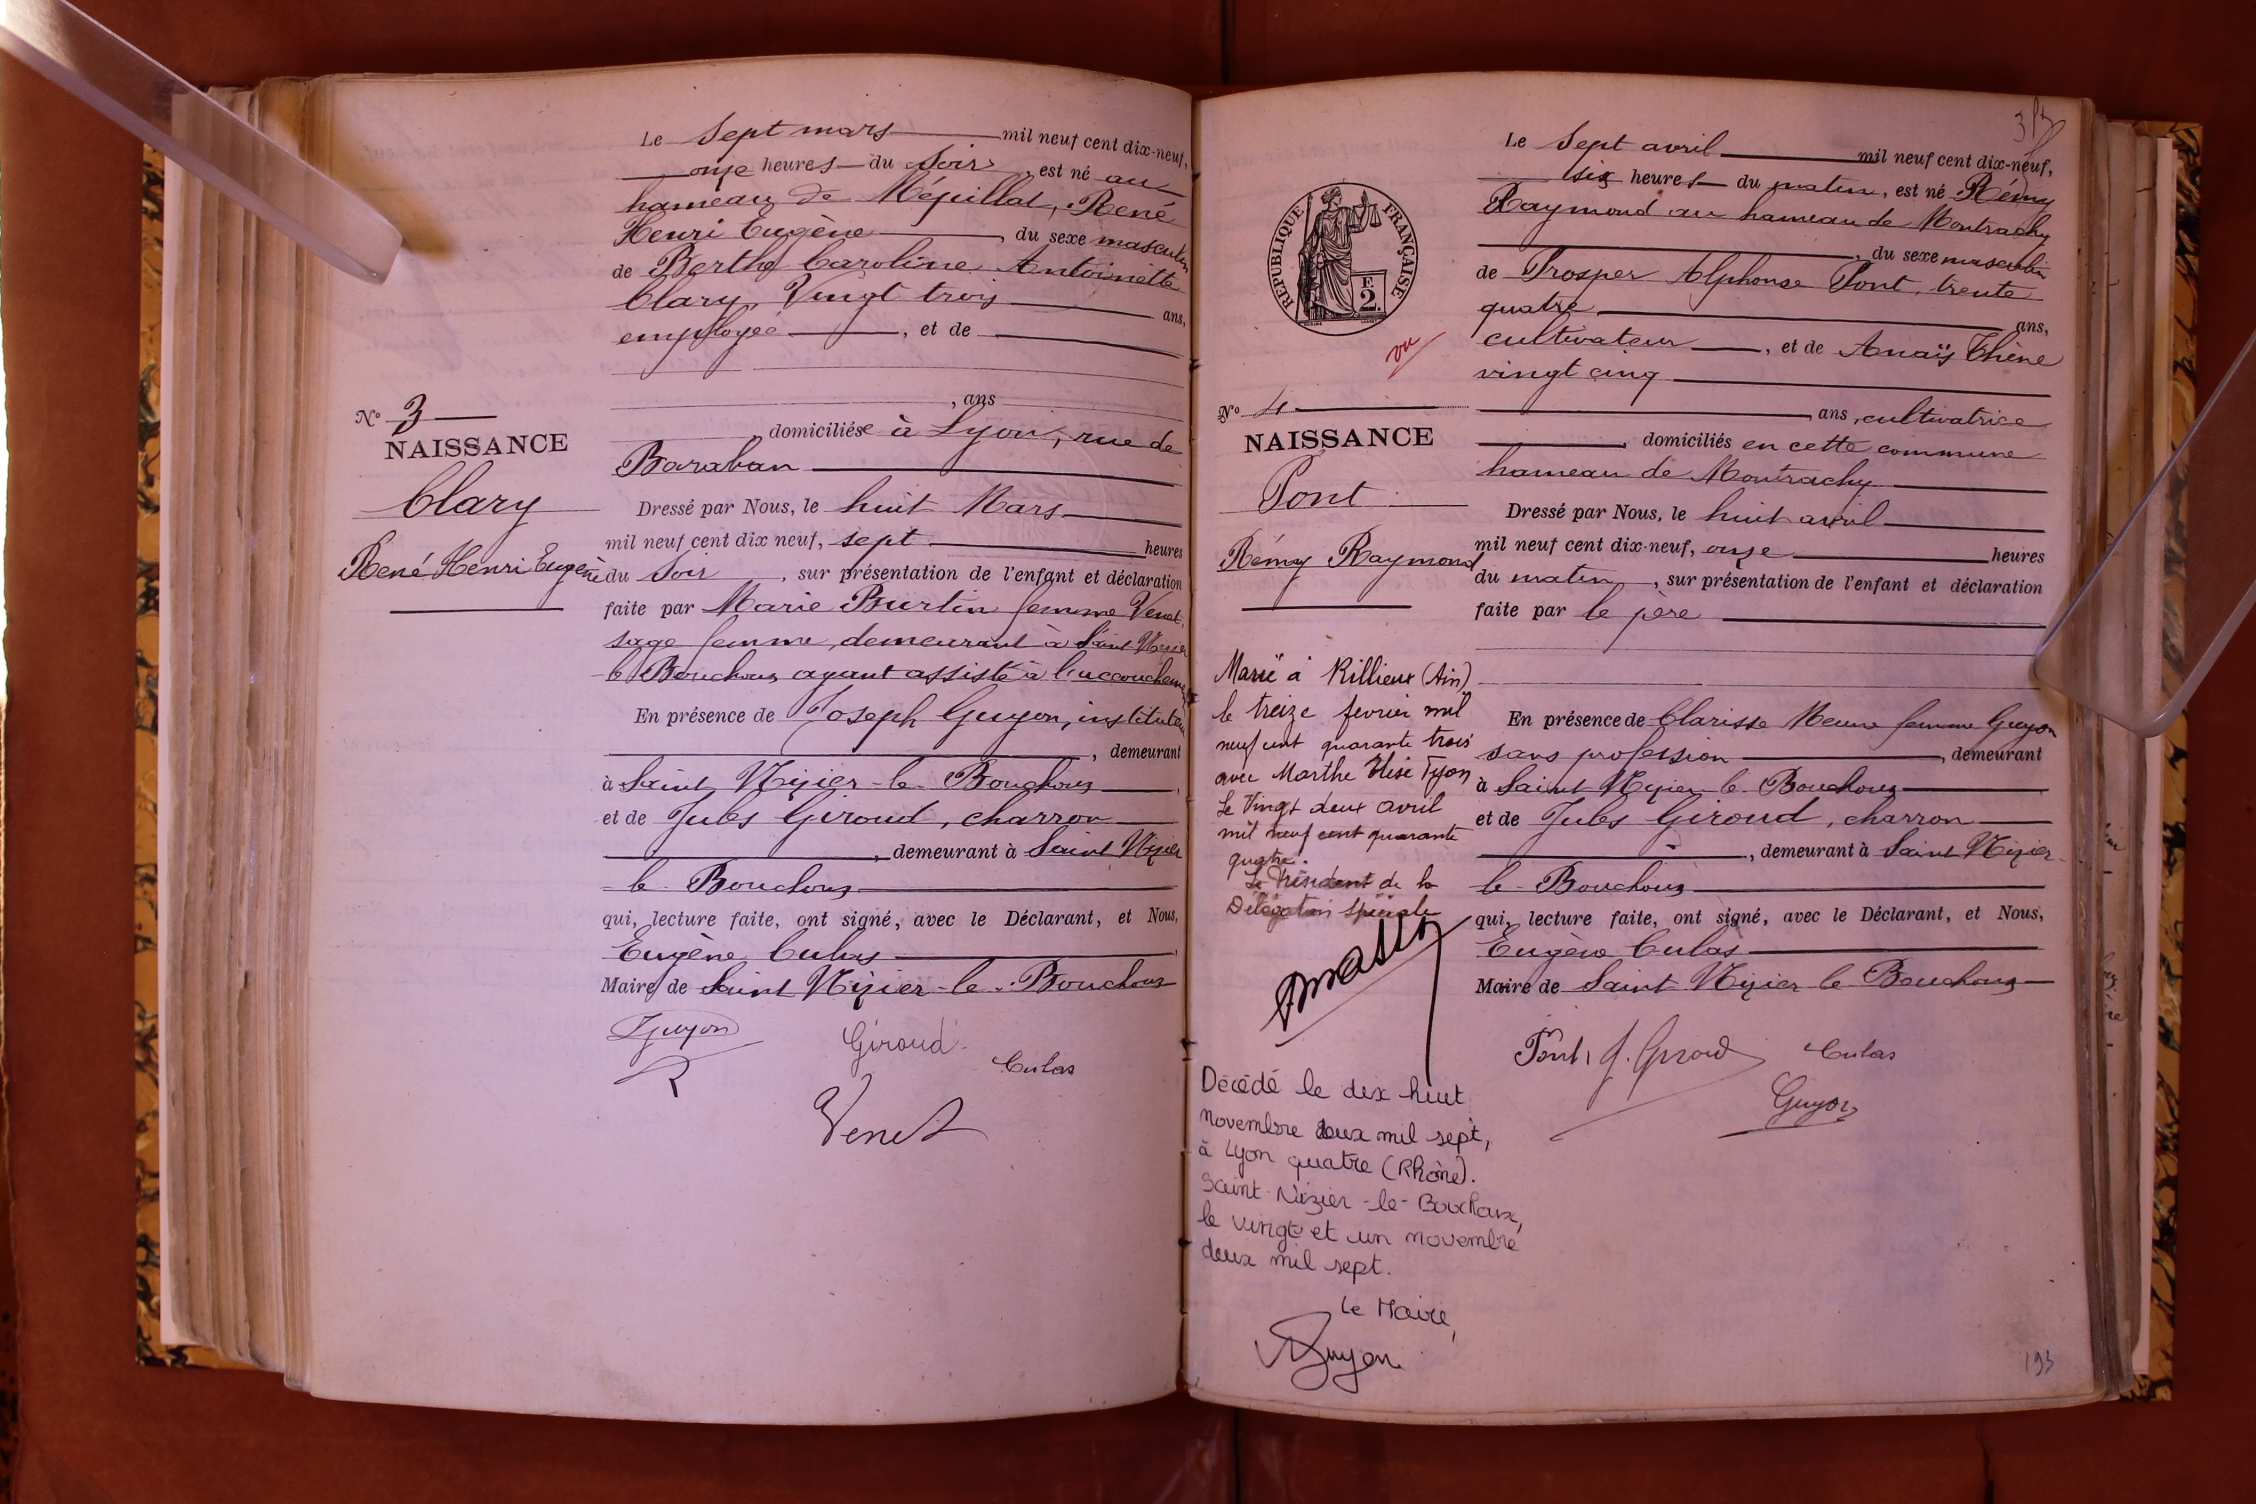 Le Sept mars mil neuf cent dix-neuf,
onze heures du Soir, est né au
hameau de Mépillat, René
Henri Eugène, du sexe masculin
de Berthe Caroline Antoinette
Clary, Vingt trois ans,
employée, et de
, ans
domiciliée à Lyon, rue de
Baraban
N° 3
NAISSANCE
Clary
René Henri Eugène
Dressé par Nous, le huit Mars
mil neuf cent dix neuf, sept heures
du Soir, sur présentation de l'enfant et déclaration
faite par Marie Burtin femme Venet,
sage femme, demeurant à Saint Nizier
le Bouchoux ayant assisté à l'accouchement
En présence de Joseph Guyon, instituteur
, demeurant
à Saint Nizier-le-Bouchoux,
et de Jules Giroud, charron
, demeurant à Saint Nizier
le-Bouchoux
qui, lecture faite, ont signé, avec le Déclarant, et Nous,
Eugène Culas,
Maire de Saint Nizier-le-Bouchoux
JGuyon
Giroud
Culas
Venet
Le Sept avril mil neuf cent dix-neuf,
six heures du matin, est né Rémy
Raymond au hameau de Montrachy
, du sexe masculin
de Prosper Alphonse Pont, trente
quatre ans,
cultivateur, et de Anaïs Thène
vingt cinq
ans, cultivatrice
, domiciliés en cette commune
hameau de Montrachy
RÉPUBLIQUE FRANÇAISE
E
2.
vu
N° 4
NAISSANCE
Pont
Rémy Raymond
Dressé par Nous, le huit avril
mil neuf cent dix-neuf, onze heures
du matin, sur présentation de l'enfant et déclaration
faite par le père
En présence de Clarisse femme Guyon
sans profession, demeurant
à Saint Nizier le Bouchoux
et de Jules Giroud, charron
, demeurant à Saint Nizier-
le-Bouchoux
qui, lecture faite, ont signé, avec le Déclarant, et Nous,
Eugène Culas
Maire de Saint Nizier le Bouchoux
Pont, J. Giroud
Culas
Guyon
Marié à Rillieux (Ain)
le treize février mil
neuf cent quarante trois
avec Marthe Elise Tyon
Le Vingt deux avril
mil neuf cent quarante
quatre.
Le Président de la
Délégation Spéciale
Décédé le dix huit
novembre deux mil sept,
à Lyon quatre (Rhône).
Saint-Nizier-le-Bouchoux,
le vingt et un novembre
deux mil sept.
Le Maire,
Guyon
193